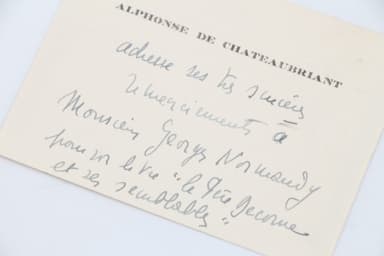 ALPHONSE DE CHATEAUBRIANT
adresse ses très sincères
remerciements à
Monsieur Georges Normandy
pour son livre "le Père Decorne
et ses semblables"